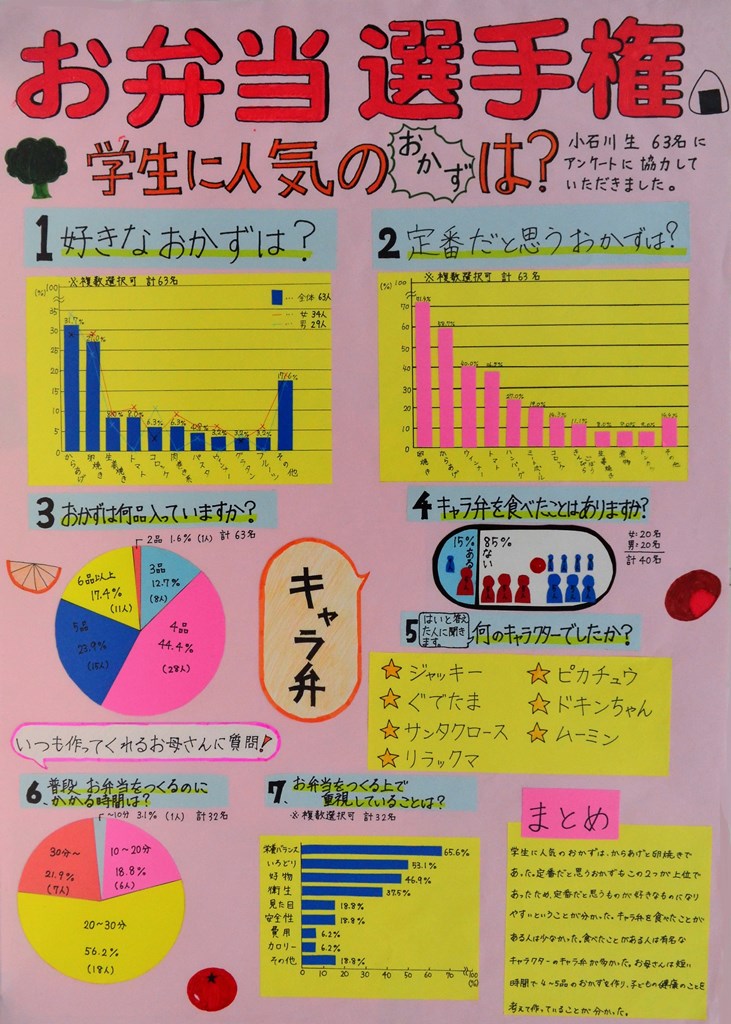 お弁当選手権
学生に人気のおかずは?
小石川生 63名に
アンケートに協力して
いただきました。
1 好きなおかずは?
※複数選択可 計63名
(%)
全体 63人
女 34人
男 29人
31.7%
8.0%
8.0%
6.3%
6.3%
3.2%
3.2%
3.2%
からあげ
卵焼き
生姜焼き
トマト
コロッケ
肉巻き系
パスタ
グラタン
フルーツ
その他
2 定番だと思うおかずは?
※複数選択可 計63名
(%)
卵焼き
からあげ
ウインナー
トマト
ハンバーグ
ミートボール
コロッケ
きんぴらごぼう
生姜焼き
煮物
トンカツ
その他
3 おかずは何品入っていますか?
2品 1.6% (1人) 計63名
3品
12.7%
(8人)
4品
44.4%
(28人)
5品
23.9%
(15人)
6品以上
17.4%
(11人)
キャラ弁
4 キャラ弁を食べたことはありますか?
15% ある
85% ない
女:20名
男:20名
計40名
5 はい と答えた人に聞きます。 何のキャラクターでしたか?
ジャッキー
ぐでたま
サンタクロース
リラックマ
ピカチュウ
ドキンちゃん
ムーミン
いつも作ってくれるお母さんに質問!
6. 普段、お弁当をつくるのに
かかる時間は?
~10分 3.1% (1人) 計32名
10~20分
18.8%
(6人)
20~30分
56.2%
(18人)
30分~
21.9%
(7人)
7. お弁当をつくる上で
重視していることは?
※複数選択可 計32名
栄養バランス 65.6%
いろどり 53.1%
好物 46.9%
衛生 37.5%
見た目 18.8%
安全性 18.8%
費用 6.2%
カロリー 6.2%
その他 18.8%
0 10 20 30 40 50 60 70 100 (%)
まとめ
学生に人気のおかずは、からあげと卵焼きで
あった。定番だと思うおかずもこの2つが上位で
あったため、定番だと思うものが好きなものになり
やすいということが分かった。キャラ弁を食べたことが
ある人は少なかった。食べたことがある人は有名な
キャラクターのキャラ弁が多かった。お母さんは短い
時間で4~5品のおかずを作り、子どもの健康のことを
考えて作っていることが分かった。